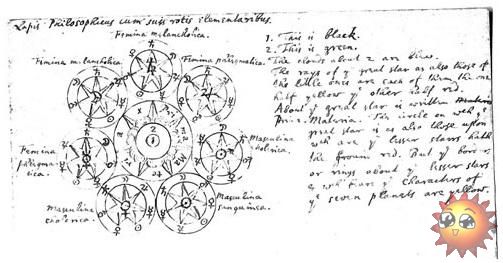 Lapis Philosophicus cum suis rotis elementaribus.
Femina melancholica.
Femina melancholica.
Femina phlegmatica.
Femina phlegmatica.
Masculina cholerica.
Masculina cholerica.
Masculina sanguinea.
1. This is black.
2. This is green.
The clouds about 2 are blew.
The rays of yᵉ great star as also those of
the little ones are each of them the one
half yellow yᵉ other half red.
About yᵉ great star is written materia
Prima Materia. The circle on wch yᵉ
great star is as also those upon
wch are yᵉ lesser starrs hath
the ground red. But yᵉ borders
or rings about yᵉ lesser stars
wch are yᵉ characters of
yᵉ seven planets are yellow.